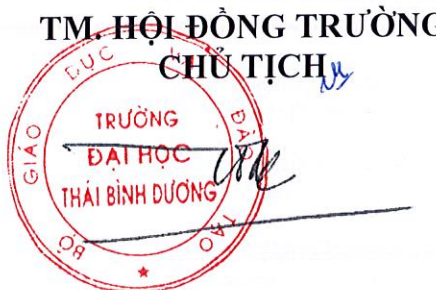 TM. HỘI ĐỒNG TRƯỜNG
CHỦ TỊCH
BỘ GIÁO DỤC VÀ ĐÀO TẠO
TRƯỜNG
ĐẠI HỌC
THÁI BÌNH DƯƠNG